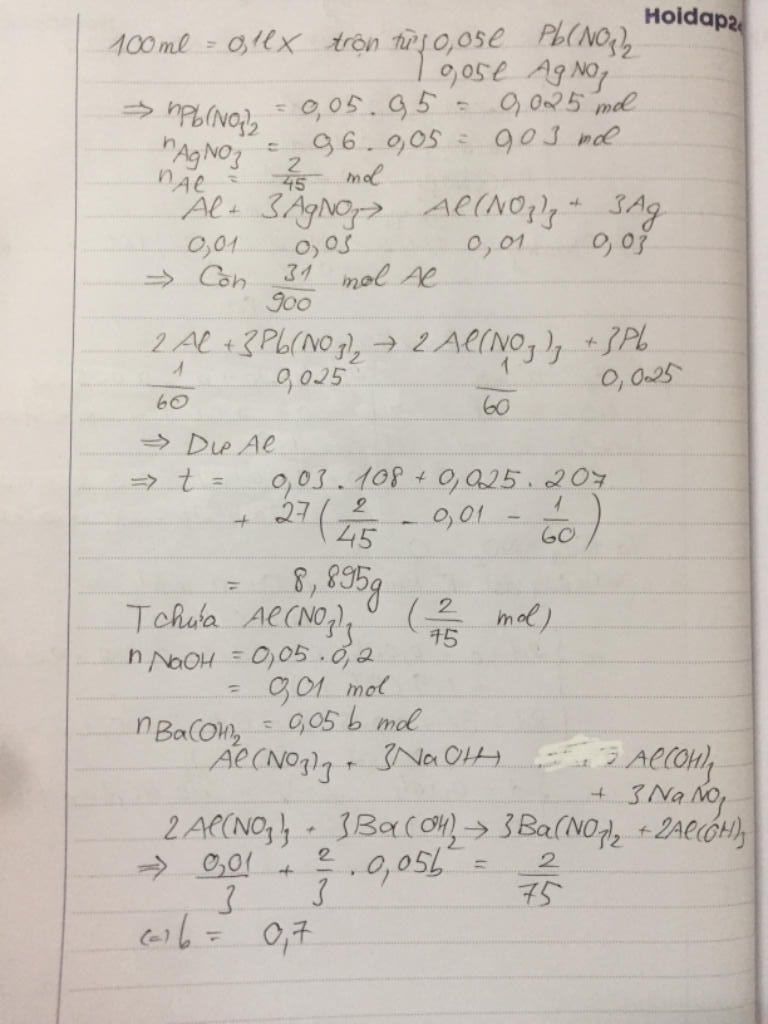 Hoidap2
100ml = 0,1l X trộn từ { 0,05l Pb(NO3)2
0,05l AgNO3
=> nPb(NO3)2 = 0,05 . 0,5 = 0,025 mol
nAgNO3 = 0,6 . 0,05 = 0,03 mol
nAl = 2/45 mol
Al + 3AgNO3 → Al(NO3)3 + 3Ag
0,01 0,03 0,01 0,03
=> Còn 31/900 mol Al
2Al + 3Pb(NO3)2 → 2Al(NO3)3 + 3Pb
1/60 0,025 1/60 0,025
=> Dư Al
=> t = 0,03 . 108 + 0,025 . 207
+ 27(2/45 - 0,01 - 1/60)
= 8,895g
T chứa Al(NO3)3 (2/75 mol)
nNaOH = 0,05 . 0,2
= 0,01 mol
nBa(OH)2 = 0,05b mol
Al(NO3)3 + 3NaOH → Al(OH)3
+ 3NaNO3
2Al(NO3)3 + 3Ba(OH)2 → 3Ba(NO3)2 + 2Al(OH)3
=> 0,01/3 + 2/3 . 0,05b = 2/75
(=) b = 0,7